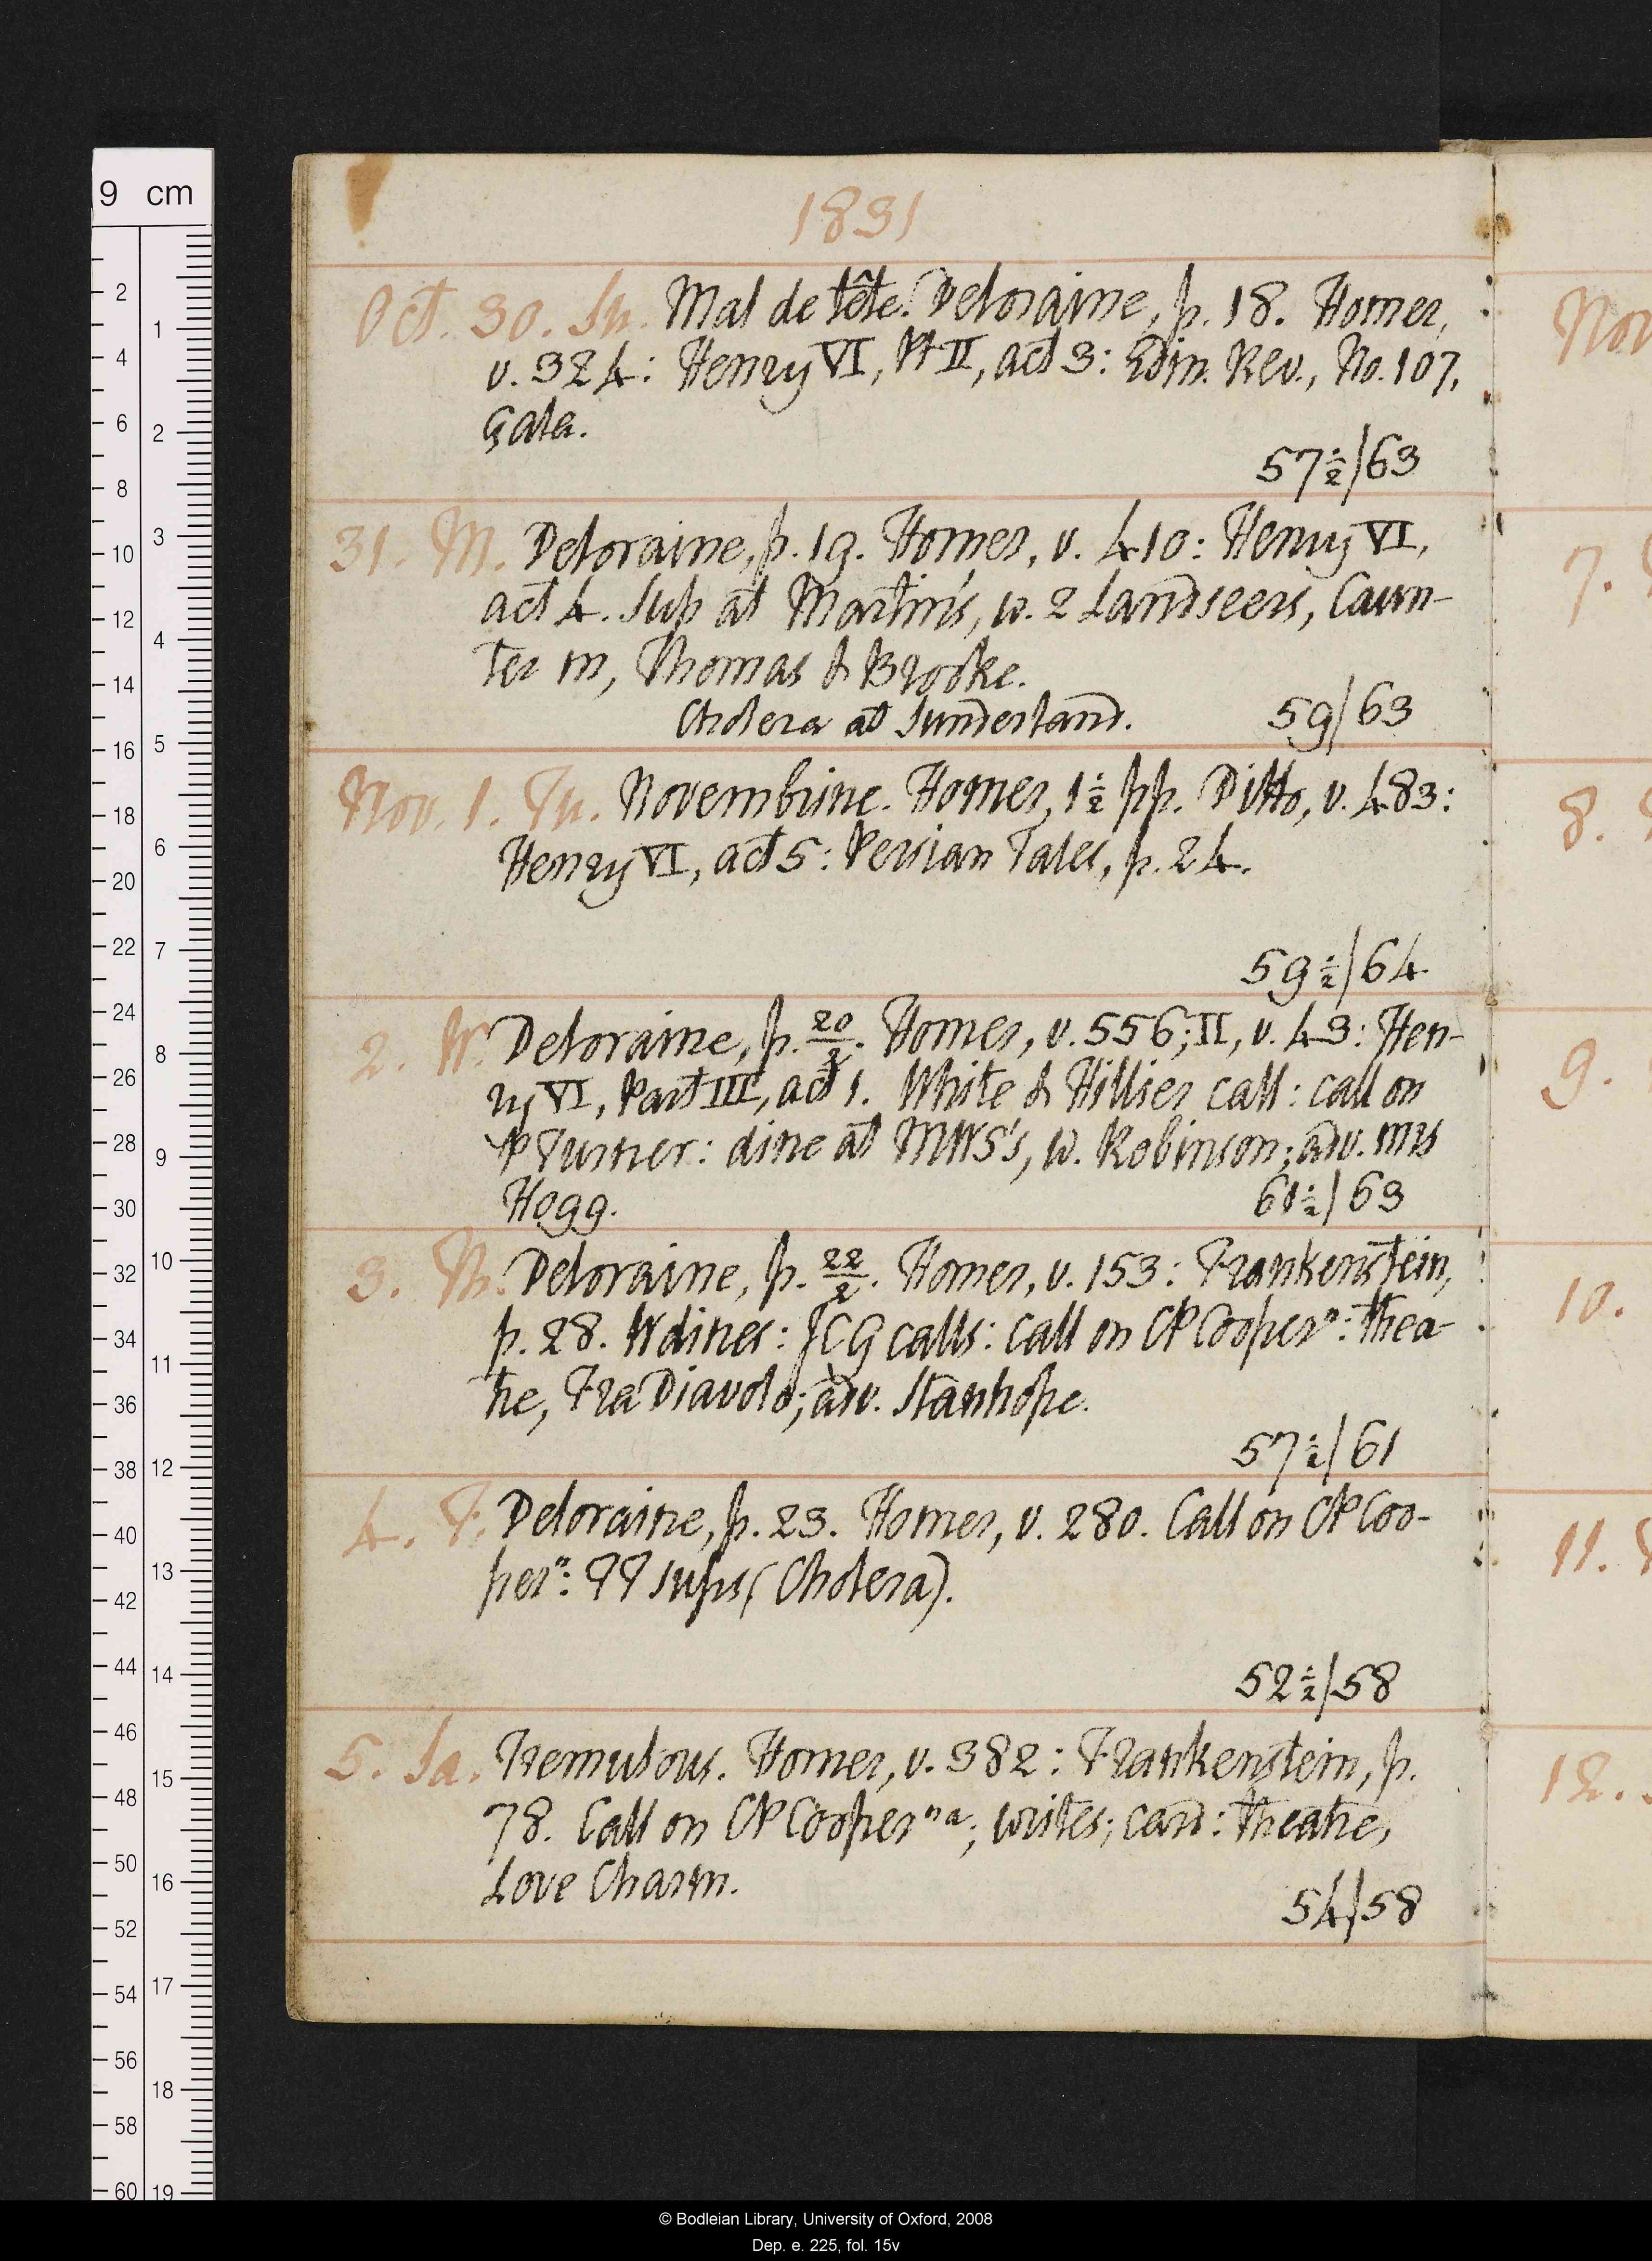 1831
Oct. 30. Su. Mal de tête. Deloraine, p. 18. Homer,
v. 324: Henry VI, Pt II, act 3: Edin. Rev., No. 107,
çala.
57½/63
31. M. Deloraine, p. 19. Homer, v. 410: Henry VI,
act 4. Sup at Martin's, w. 2 Landseers, Caun-
ter m, Thomas & Brooke.
Cholera at Sunderland. 59/63
Nov. 1. Tu. Novembrine. Homer, 1½ pp. Ditto, v. 483:
Henry VI, act 5: Persian Tales, p. 24.
59½/64
2. W. Deloraine, p. 20/2. Homer, v. 556; II, v. 43: Hen-
ry VI, Part III, act 1. White & Hillier call: call on
P Turner: dine at MWS's, w. Robinson; adv. mrs
Hogg. 61½/63
3. Th. Deloraine, p. 22/2. Homer, v. 153: Frankenstein,
p. 28. W dines: JCG calls: call on CP Cooper n: thea-
tre, Fra Diavolo; adv. Stanhope.
57½/61
4. F. Deloraine, p. 23. Homer, v. 280. Call on CP Coo-
per n: TT sups (Cholera).
52½/58
5. Sa. Tremulous. Homer, v. 382: Frankenstein, p.
78. Call on CP Cooper na; writes; card: theatre,
Love Charm.
54/58
Nov
7.
8.
9.
10.
11.
12.
9 cm
2
4
6
8
10
12
14
16
18
20
22
24
26
28
30
32
34
36
38
40
42
44
46
48
50
52
54
56
58
60
1
2
3
4
5
6
7
8
9
10
11
12
13
14
15
16
17
18
19
© Bodleian Library, University of Oxford, 2008
Dep. e. 225, fol. 15v